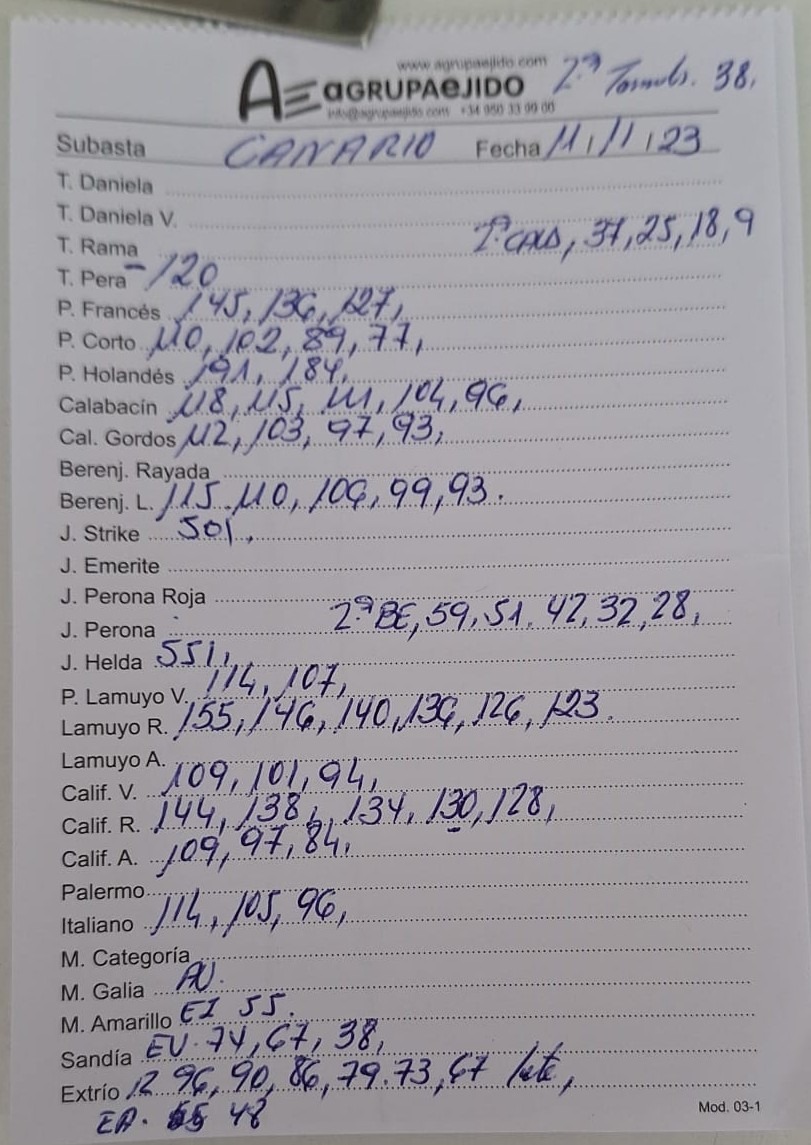 www.agrupaejido.com
AGRUPAEJIDO 2ª Tomats. 38,
info@agrupaejido.com +34 950 33 99 00
Subasta CANARIO Fecha 11/11/23
T. Daniela
T. Daniela V.
T. Rama 2ª CALD, 37, 25, 18, 9
T. Pera - 120
P. Francés 145, 136, 127,
P. Corto 110, 102, 89, 77,
P. Holandés 191, 184,
Calabacín 118, 115, 111, 104, 96,
Cal. Gordos 112, 103, 97, 93,
Berenj. Rayada
Berenj. L. 115 110, 106, 99, 93.
J. Strike 501,
J. Emerite
J. Perona Roja
J. Perona 2ª BE, 59, 51, 42, 32, 28,
J. Helda 551,
P. Lamuyo V. 114, 107,
Lamuyo R. 155, 146, 140, 136, 126, 123.
Lamuyo A.
Calif. V. 109, 101, 94,
Calif. R. 144, 138, 134, 130, 128,
Calif. A. 109, 97, 84,
Palermo
Italiano 114, 105, 96,
M. Categoría
M. Galia AV.
M. Amarillo EI 55.
Sandía EV. 74, 67, 38,
Extrío 12 96, 90, 86, 79. 73, 67
EA. 48
Mod. 03-1